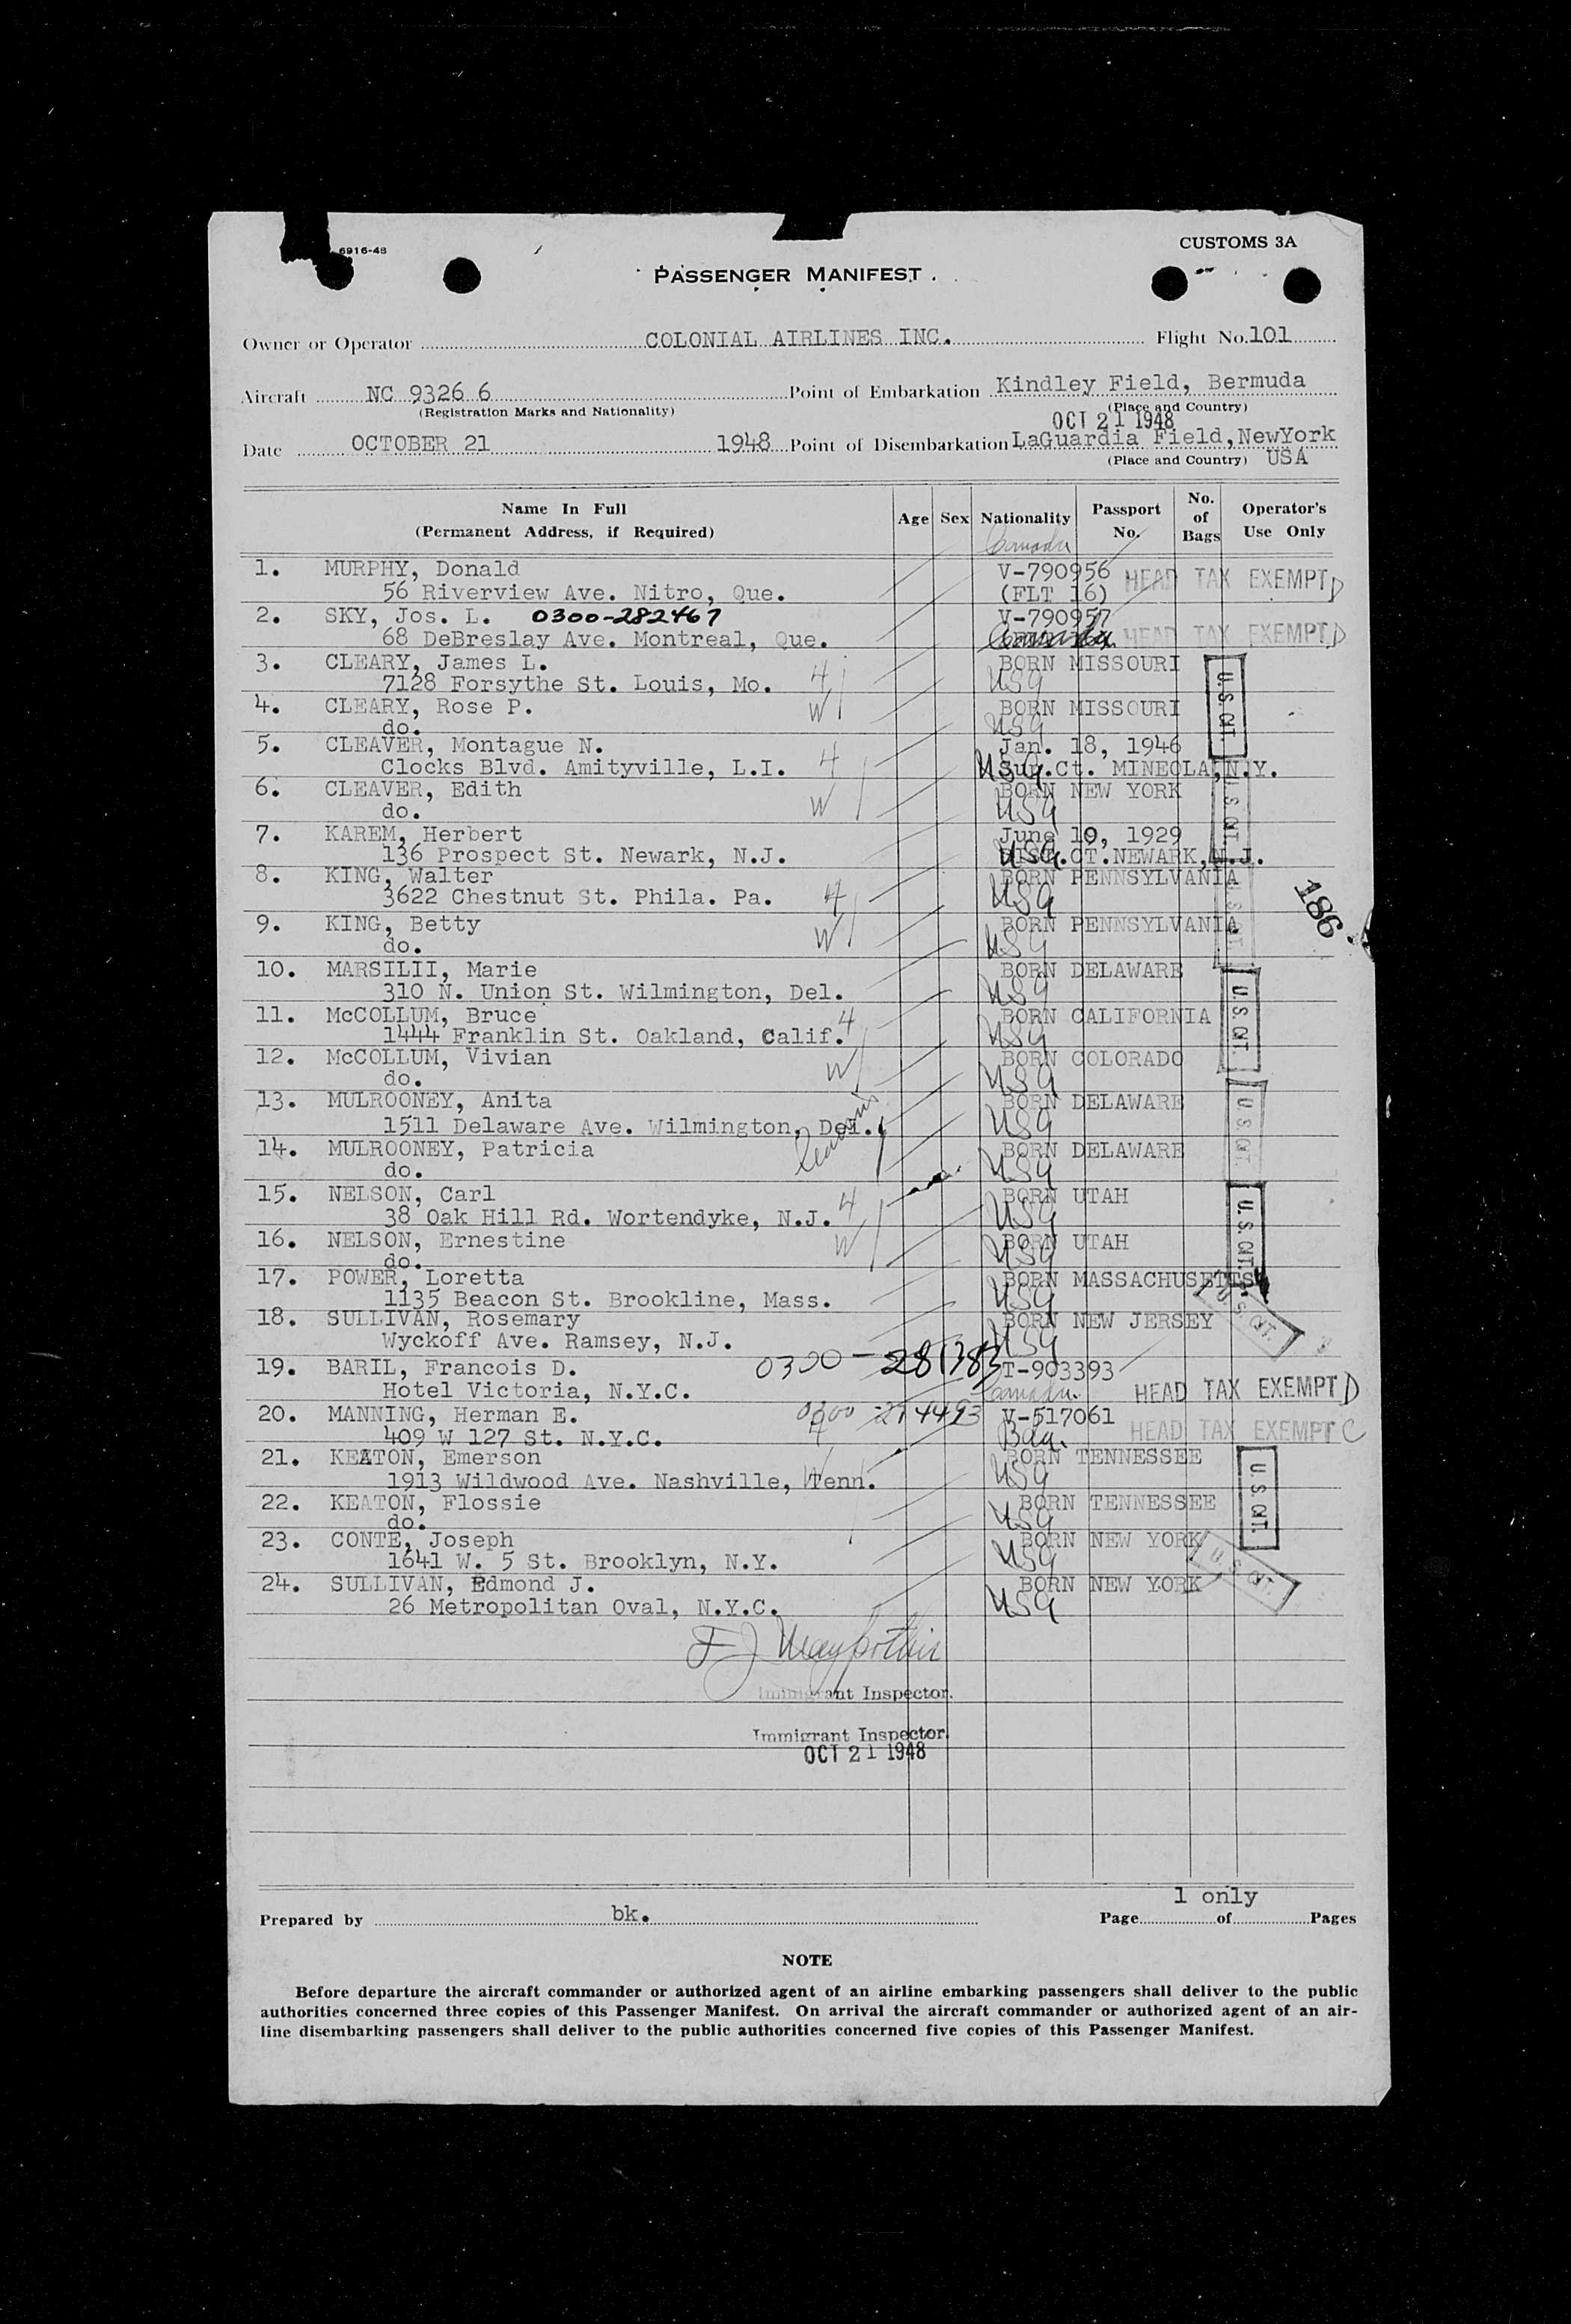 6916-48
CUSTOMS 3A
PASSENGER MANIFEST
Owner or Operator COLONIAL AIRLINES INC. Flight No. 101
Aircraft NC 9326 6 Point of Embarkation Kindley Field, Bermuda
(Registration Marks and Nationality) (Place and Country)
OCT 21 1948
Date OCTOBER 21 1948 Point of Disembarkation LaGuardia Field, NewYork
(Place and Country) USA
Name In Full (Permanent Address, if Required) Age Sex Nationality Passport No. No. of Bags Operator's Use Only
Canada
1. MURPHY, Donald V-790956 HEAD TAX EXEMPT D
56 Riverview Ave. Nitro, Que. (FLT 16)
2. SKY, Jos. L. 0300-282467 V-790957
68 DeBreslay Ave. Montreal, Que. Canada HEAD TAX EXEMPT D
3. CLEARY, James L. BORN MISSOURI
7128 Forsythe St. Louis, Mo. H USA U.S. CIT.
4. CLEARY, Rose P. W BORN MISSOURI
do. USA
5. CLEAVER, Montague N. Jan. 18, 1946
Clocks Blvd. Amityville, L.I. H USA Sup.Ct. MINEOLA, N.Y.
6. CLEAVER, Edith BORN NEW YORK
do. W USA U.S. CIT.
7. KAREM, Herbert June 10, 1929
136 Prospect St. Newark, N.J. USA DIST.CT.NEWARK, N.J.
8. KING, Walter BORN PENNSYLVANIA
3622 Chestnut St. Phila. Pa. H USA 186
9. KING, Betty BORN PENNSYLVANIA
do. W USA
10. MARSILII, Marie BORN DELAWARE
310 N. Union St. Wilmington, Del. USA
11. McCOLLUM, Bruce BORN CALIFORNIA U.S. CIT.
1444 Franklin St. Oakland, Calif. H USA
12. McCOLLUM, Vivian BORN COLORADO
do. W USA
13. MULROONEY, Anita BORN DELAWARE
1511 Delaware Ave. Wilmington, Del. USA U.S. CIT.
14. MULROONEY, Patricia BORN DELAWARE
do. USA
15. NELSON, Carl BORN UTAH
38 Oak Hill Rd. Wortendyke, N.J. H USA U.S. CIT.
16. NELSON, Ernestine BORN UTAH
do. W USA
17. POWER, Loretta BORN MASSACHUSETTS
1135 Beacon St. Brookline, Mass. USA
18. SULLIVAN, Rosemary BORN NEW JERSEY U.S. CIT.
Wyckoff Ave. Ramsey, N.J. USA
19. BARIL, Francois D. 0300-281383 T-903393
Hotel Victoria, N.Y.C. Canada. HEAD TAX EXEMPT D
20. MANNING, Herman E. V-517061
409 W 127 St. N.Y.C. HEAD TAX EXEMPT C
21. KEATON, Emerson BORN TENNESSEE
1913 Wildwood Ave. Nashville, Tenn. USA
22. KEATON, Flossie BORN TENNESSEE U.S. CIT.
do. USA
23. CONTE, Joseph BORN NEW YORK
1641 W. 5 St. Brooklyn, N.Y. USA U.S. CIT.
24. SULLIVAN, Edmond J. BORN NEW YORK
26 Metropolitan Oval, N.Y.C. USA
Immigrant Inspector.
Immigrant Inspector.
OCT 21 1948
1 only
Prepared by bk. Page of Pages
NOTE
Before departure the aircraft commander or authorized agent of an airline embarking passengers shall deliver to the public
authorities concerned three copies of this Passenger Manifest. On arrival the aircraft commander or authorized agent of an air-
line disembarking passengers shall deliver to the public authorities concerned five copies of this Passenger Manifest.